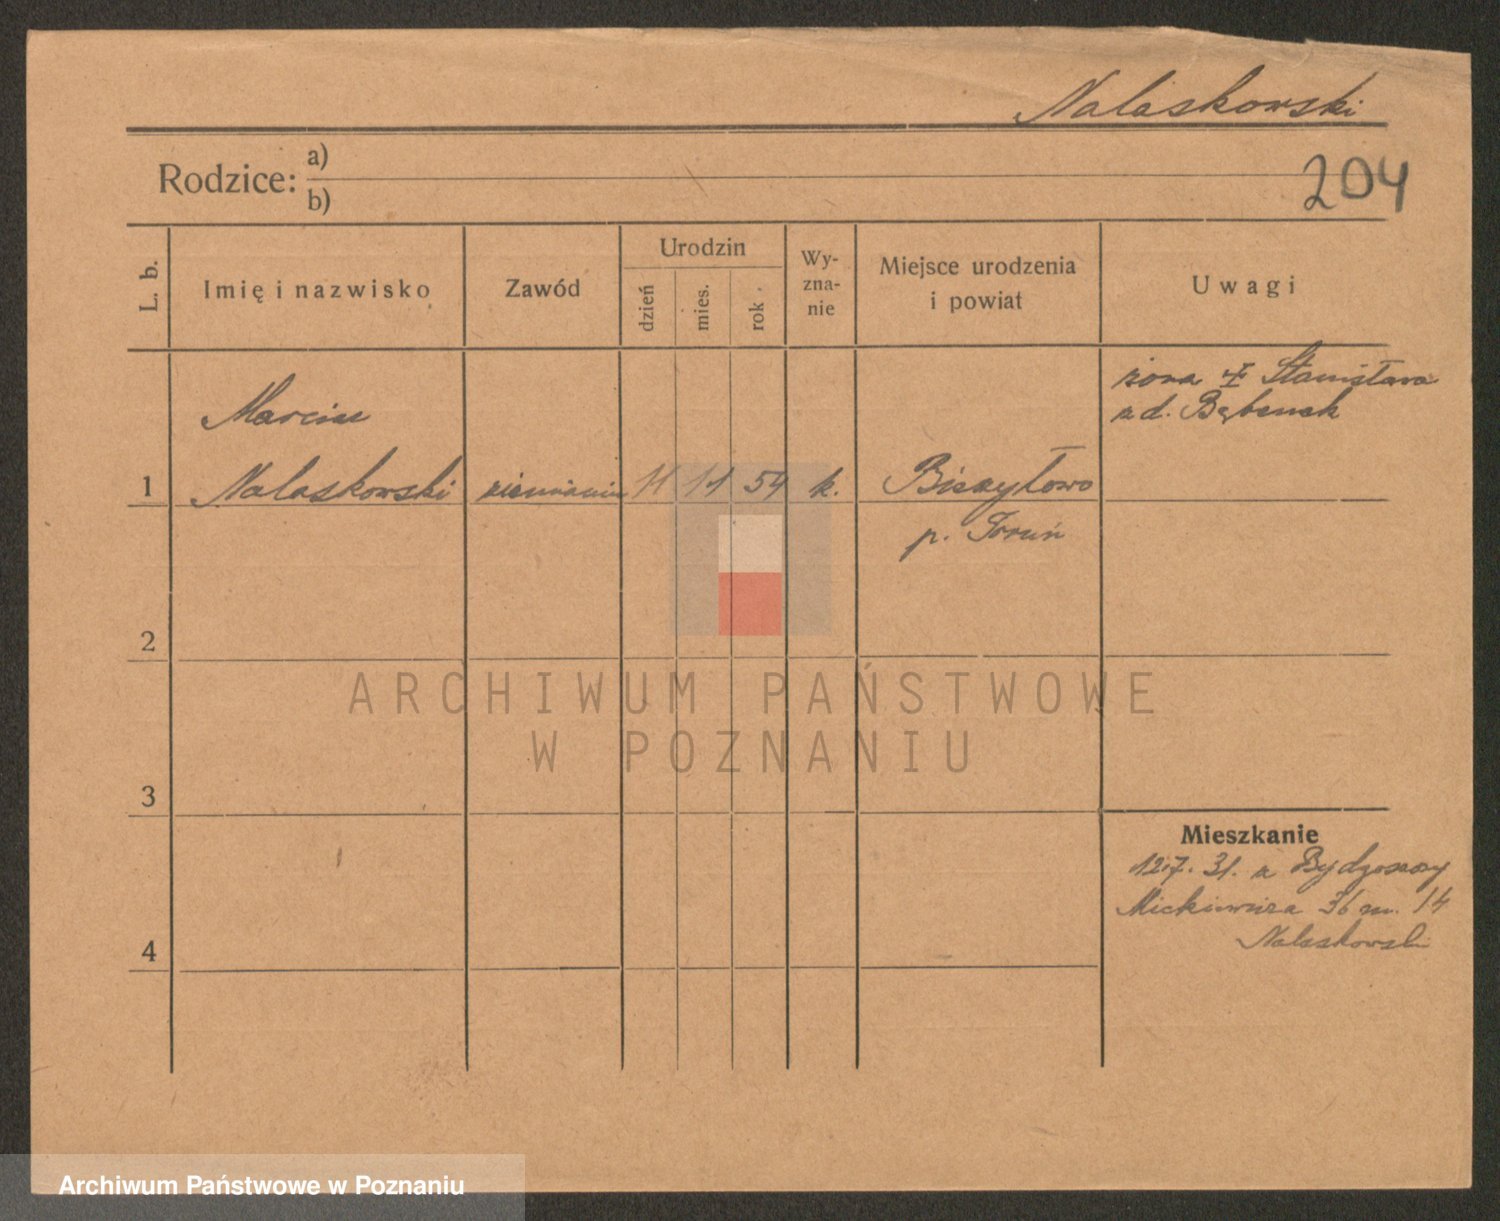 Nalaskowski
Rodzice: a)
b)
204
L. b.
Imię i nazwisko
Zawód
Urodzin
dzień
mies.
rok
Wy-
zna-
nie
Miejsce urodzenia
i powiat
Uwagi
żona Stanisława
z d. Bębenek
Marcin
1 Nalaskowski ziemianin 11 11 54 k. Biskupłowo
p. Toruń
2
3
4
Mieszkanie
12.7.31. z Bydgoszczy
Mickiewicza 36 m. 14
Nalaskowski
ARCHIWUM PAŃSTWOWE
W POZNANIU
Archiwum Państwowe w Poznaniu